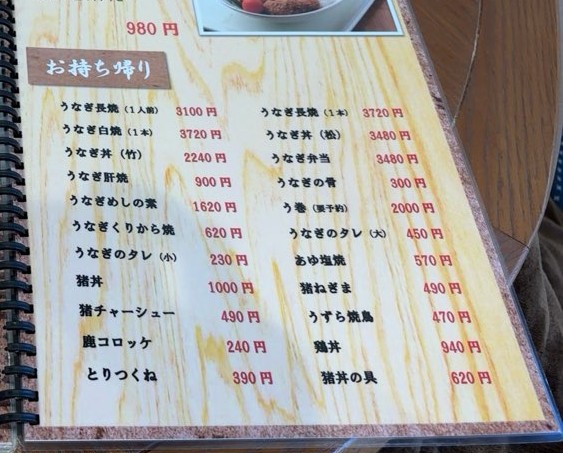 980 円
お持ち帰り
うなぎ長焼（１人前） 3100 円
うなぎ白焼（１本） 3720 円
うなぎ丼（竹） 2240 円
うなぎ肝焼 900 円
うなぎめしの素 1620 円
うなぎくりから焼 620 円
うなぎのタレ（小） 230 円
猪丼 1000 円
猪チャーシュー 490 円
鹿コロッケ 240 円
とりつくね 390 円
うなぎ長焼（１本） 3720 円
うなぎ丼（松） 3480 円
うなぎ弁当 3480 円
うなぎの骨 300 円
う巻（要予約） 2000 円
うなぎのタレ（大） 450 円
あゆ塩焼 570 円
猪ねぎま 490 円
うずら焼鳥 470 円
鶏丼 940 円
猪丼の具 620 円